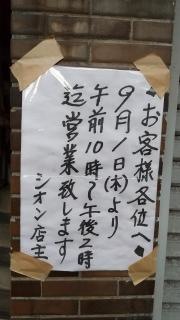 ◆お客様各位へ◆
9月1日(木)より
午前10時～午後2時
迄営業致します
シオン店主